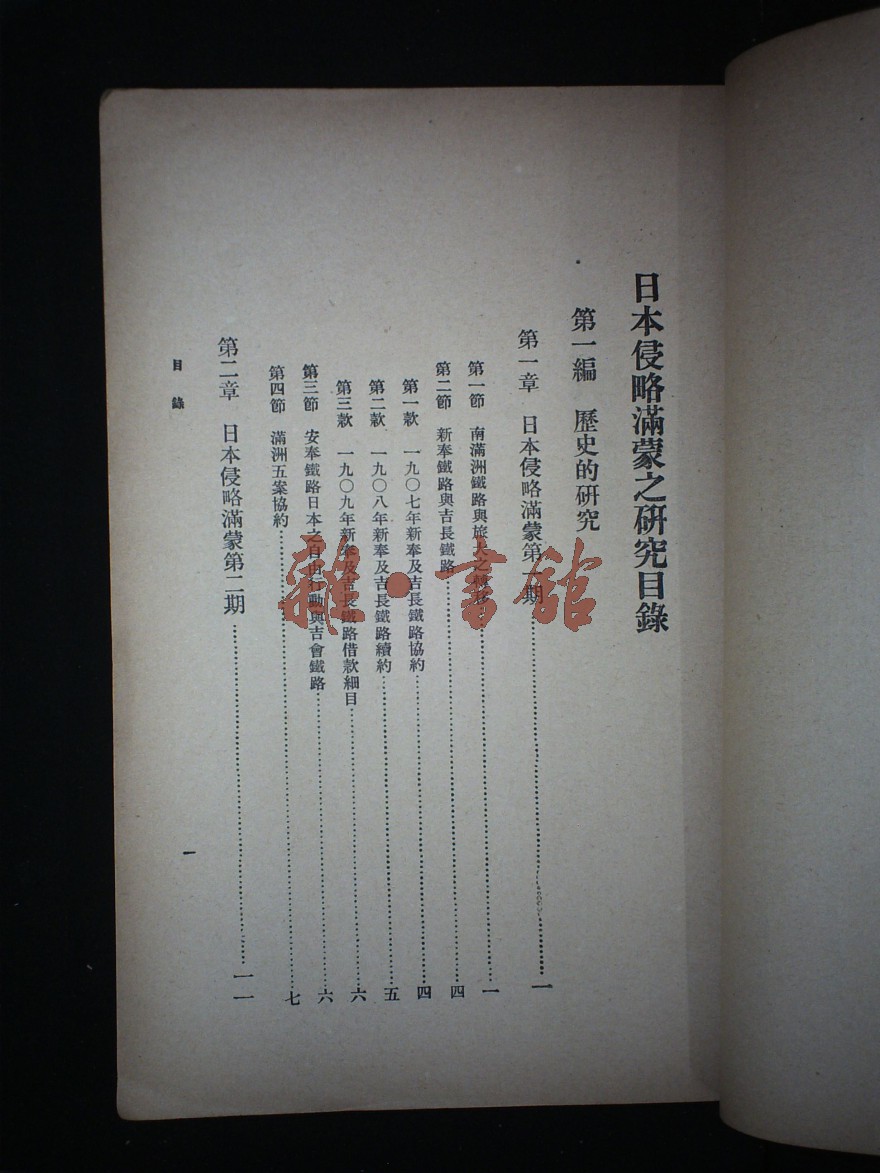 日本侵略滿蒙之硏究目錄
第一編 歷史的硏究
第一章 日本侵略滿蒙第一期 一
第一節 南滿洲鐵路與旅大之 一
第二節 新奉鐵路與吉長鐵路 四
第一款 一九〇七年新奉及吉長鐵路協約 四
第二款 一九〇八年新奉及吉長鐵路續約 五
第三款 一九〇九年新奉及吉長鐵路借款細目 六
第三節 安奉鐵路日本之自由行動與吉會鐵路 六
第四節 滿洲五案協約 七
第二章 日本侵略滿蒙第二期 一一
目錄
一
雜·書館